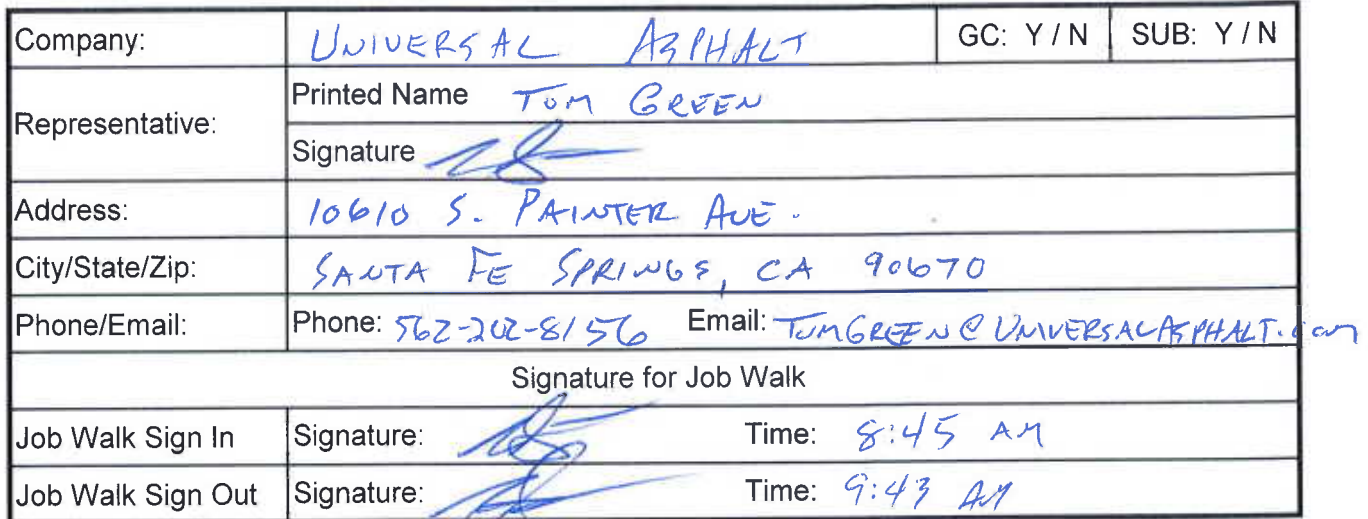 Company: UNIVERSAL ASPHALT GC: Y / N SUB: Y / N
Representative:
Printed Name TOM GREEN
Signature
Address: 10610 S. PAINTER AVE.
City/State/Zip: SANTA FE SPRINGS, CA 90670
Phone/Email: Phone: 562-202-8156 Email: TOMGREEN@UNIVERSALASPHALT.com
Signature for Job Walk
Job Walk Sign In Signature: Time: 8:45 AM
Job Walk Sign Out Signature: Time: 9:43 AM